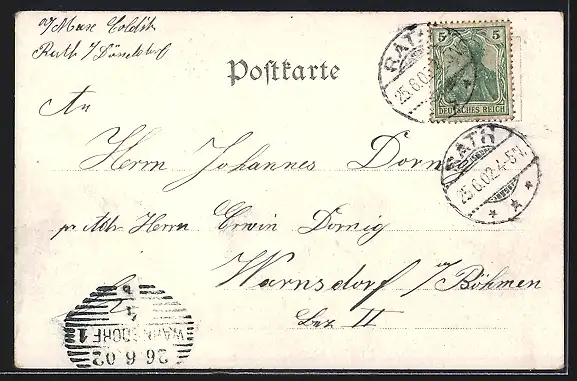 a/ Max Colditz
Rath b/ Düsseldorf
Postkarte
5 5
DEUTSCHES REICH
RATH
25.6.02
An
Herrn Johannes Dorn
RATH
25.6.02.4-5N.
pr Adr Herrn Erwin Dornig
Warnsdorf i/Böhmen
Bez II
WARNSDORF 1
26 6 02